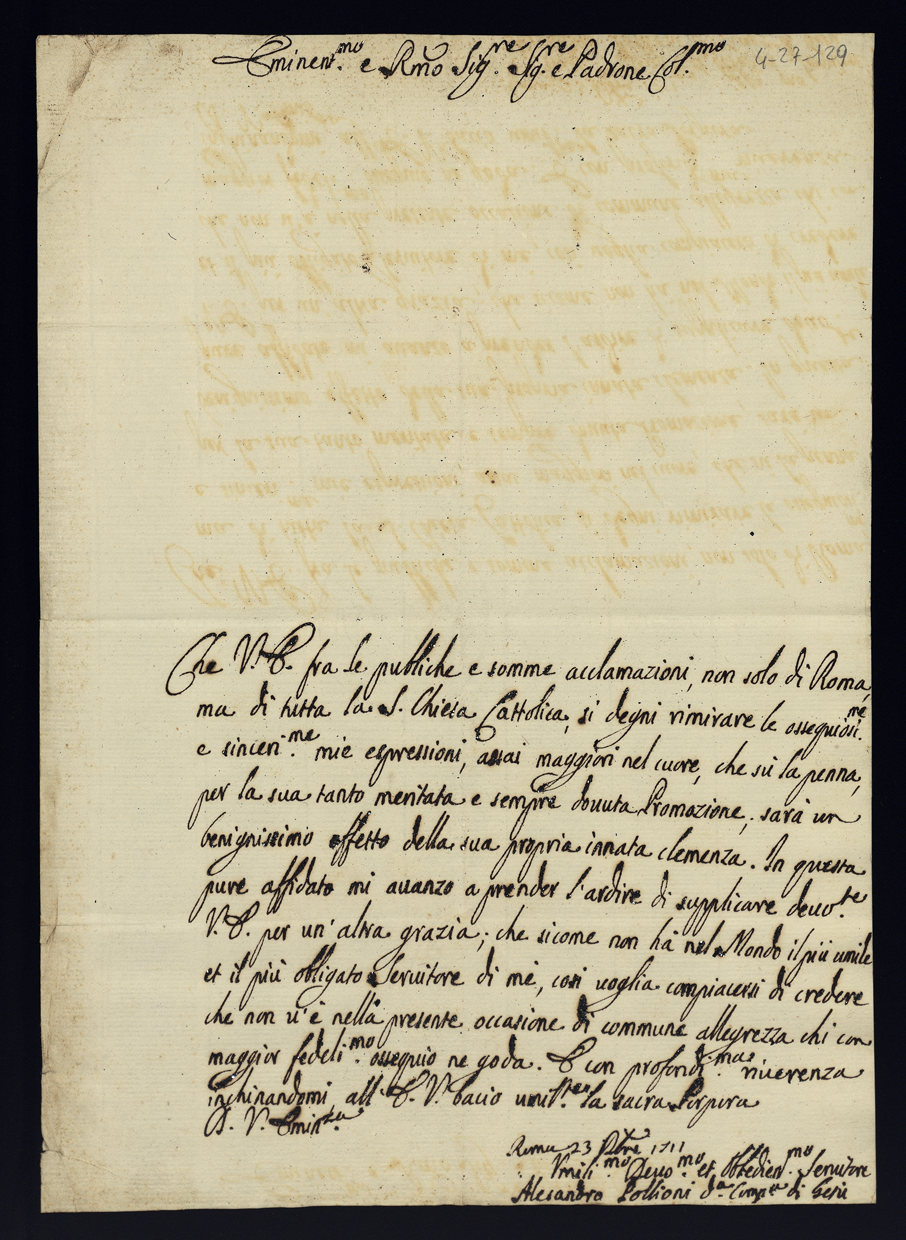 Eminen.mo e Rmo Sig.re Sig.re e Padrone Col.mo
4-27-129
Che V. E. fra le publiche e somme acclamazioni, non solo di Roma,
ma di tutta la S. Chiesa Cattolica, si degni rimirare le ossequiosi.me
e sinceri.me mie espressioni, assai maggiori nel cuore, che sù la penna,
per la sua tanto meritata e sempre douuta Promozione, sarà un
benignissimo effetto della sua propria innata clemenza. In questa
pure affidato mi auanzo a prender l'ardire di supplicare deuo.te
V. E. per un'altra grazia; che sicome non hà nel Mondo il più umile
et il più obligato Seruitore di mè, così uoglia compiacersi di credere
che non u'è nella presente occasione di commune allegrezza chi con
maggior fedeli.mo ossequio ne goda. E con profondi.ma riuerenza
inchinandomi all' E. V. bacio umil.te la sacra Porpora
D. V. Emin.za
Roma 23 Xbre 1711
Vmili.mo Deuo.mo et Obbedien.mo Seruitore
Alesandro Pollioni d.a Comp.a di Gesù